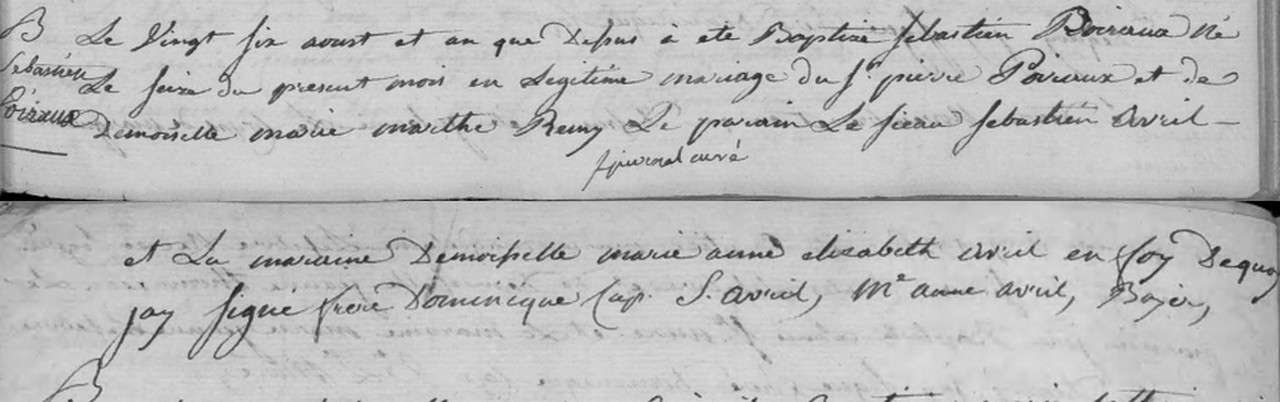 B Le Vingt six aoust et an que Desus a eté Baptisé sebastien Poiriaux né
Sebastien Le seize du present mois en Legitime mariage du Sr. pierre Poiriaux et de
Poiriaux Demoiselle marie marthe Remy Le parain Le sieau sebastien avril
curé
et La maraine Demoisselle marie anne elisabeth avril en foy Dequoy
jay signé frere Dominicque Cap. S. avril, Me anne avril, Boyer,
B